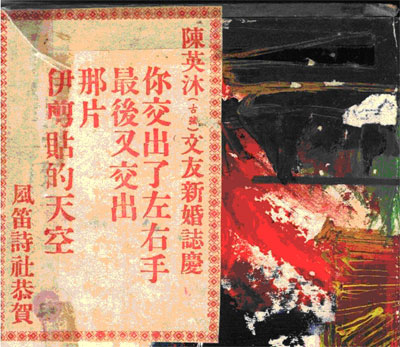 陳英沐(古弦)文友新婚誌慶
你交出了左右手
最後又交出
那片
伊剪貼的天空
風笛詩社恭賀